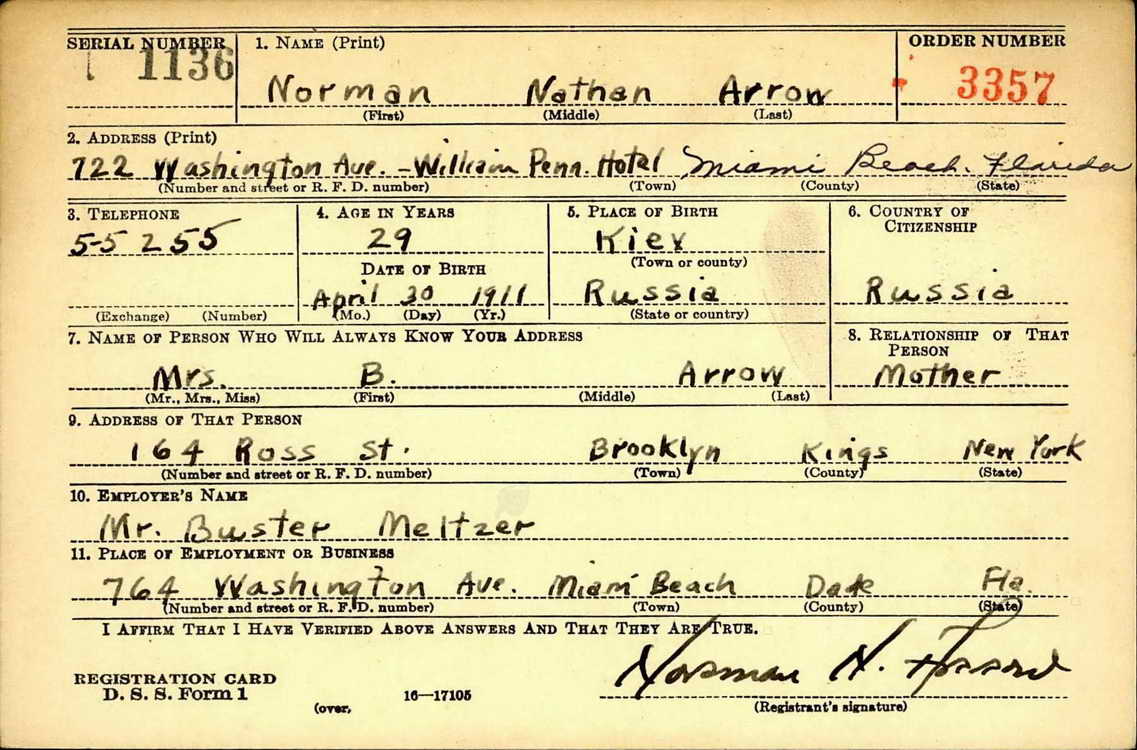 SERIAL NUMBER 1. NAME (Print) ORDER NUMBER
1136 Norman Nathan Arrow 3357
(First) (Middle) (Last)
2. ADDRESS (Print)
722 Washington Ave. - William Penn. Hotel Miami Beach. Florida
(Number and street or R. F. D. number) (Town) (County) (State)
3. TELEPHONE 4. AGE IN YEARS 5. PLACE OF BIRTH 6. COUNTRY OF
CITIZENSHIP
5-5255 29 Kiev
(Town or county)
DATE OF BIRTH
April 30 1911 Russia Russia
(Exchange) (Number) (Mo.) (Day) (Yr.) (State or country)
7. NAME OF PERSON WHO WILL ALWAYS KNOW YOUR ADDRESS 8. RELATIONSHIP OF THAT
PERSON
Mrs. B. Arrow Mother
(Mr., Mrs., Miss) (First) (Middle) (Last)
9. ADDRESS OF THAT PERSON
164 Ross St. Brooklyn Kings New York
(Number and street or R. F. D. number) (Town) (County) (State)
10. EMPLOYER'S NAME
Mr. Buster Meltzer
11. PLACE OF EMPLOYMENT OR BUSINESS
764 Washington Ave. Miami Beach Dade Fla.
(Number and street or R. F. D. number) (Town) (County) (State)
I AFFIRM THAT I HAVE VERIFIED ABOVE ANSWERS AND THAT THEY ARE TRUE.
Norman N. Arrow
REGISTRATION CARD
D. S. S. Form 1 (over) 16—17105 (Registrant's signature)